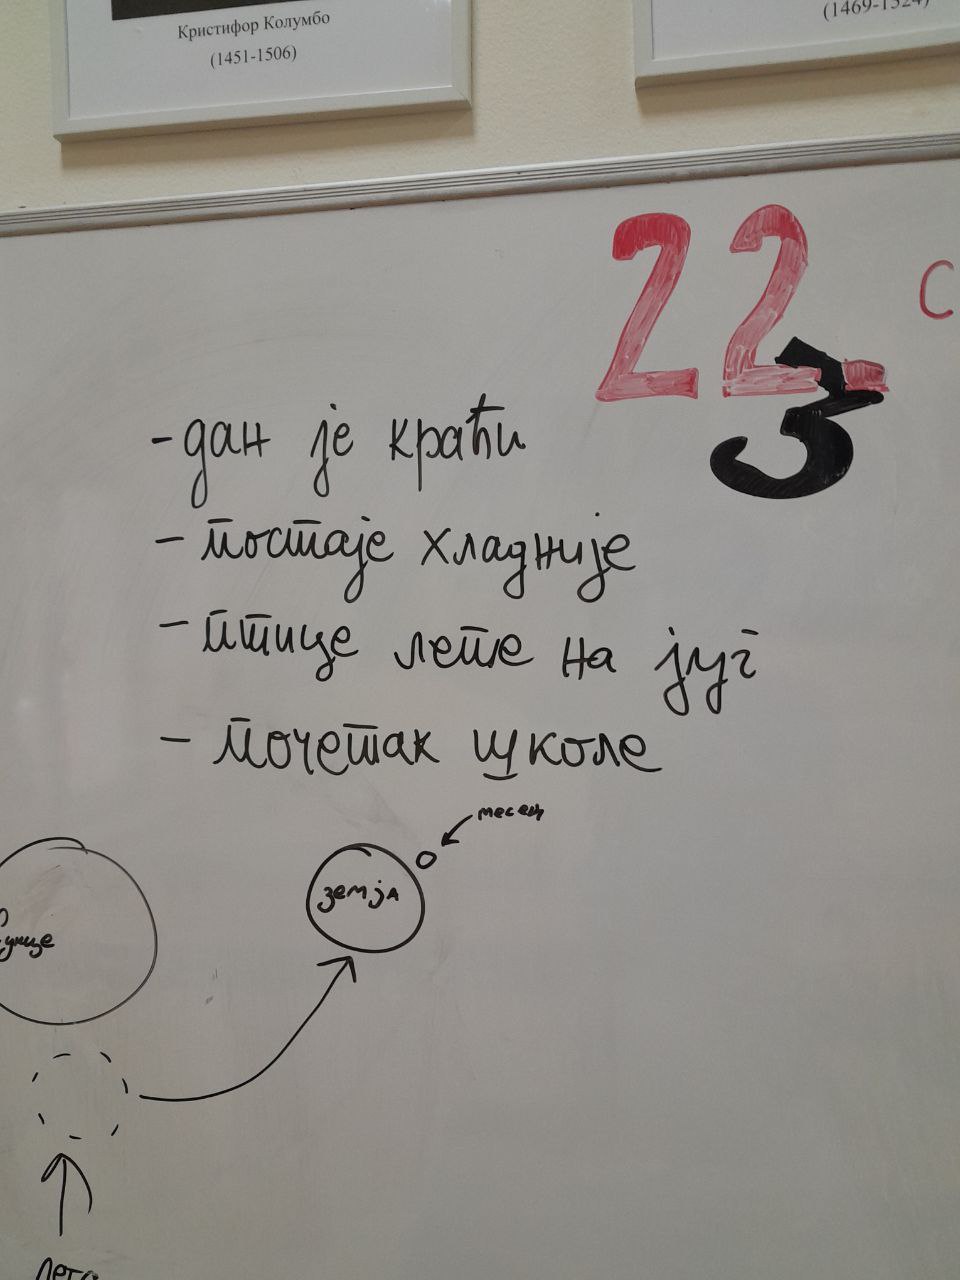 Кристифор Колумбо
(1451-1506)
(1469-1524)
22
3
С
- дан је краћи
- постаје хладније
- птице лете на југ
- почетак школе
месец
земја
Сунце
Лето